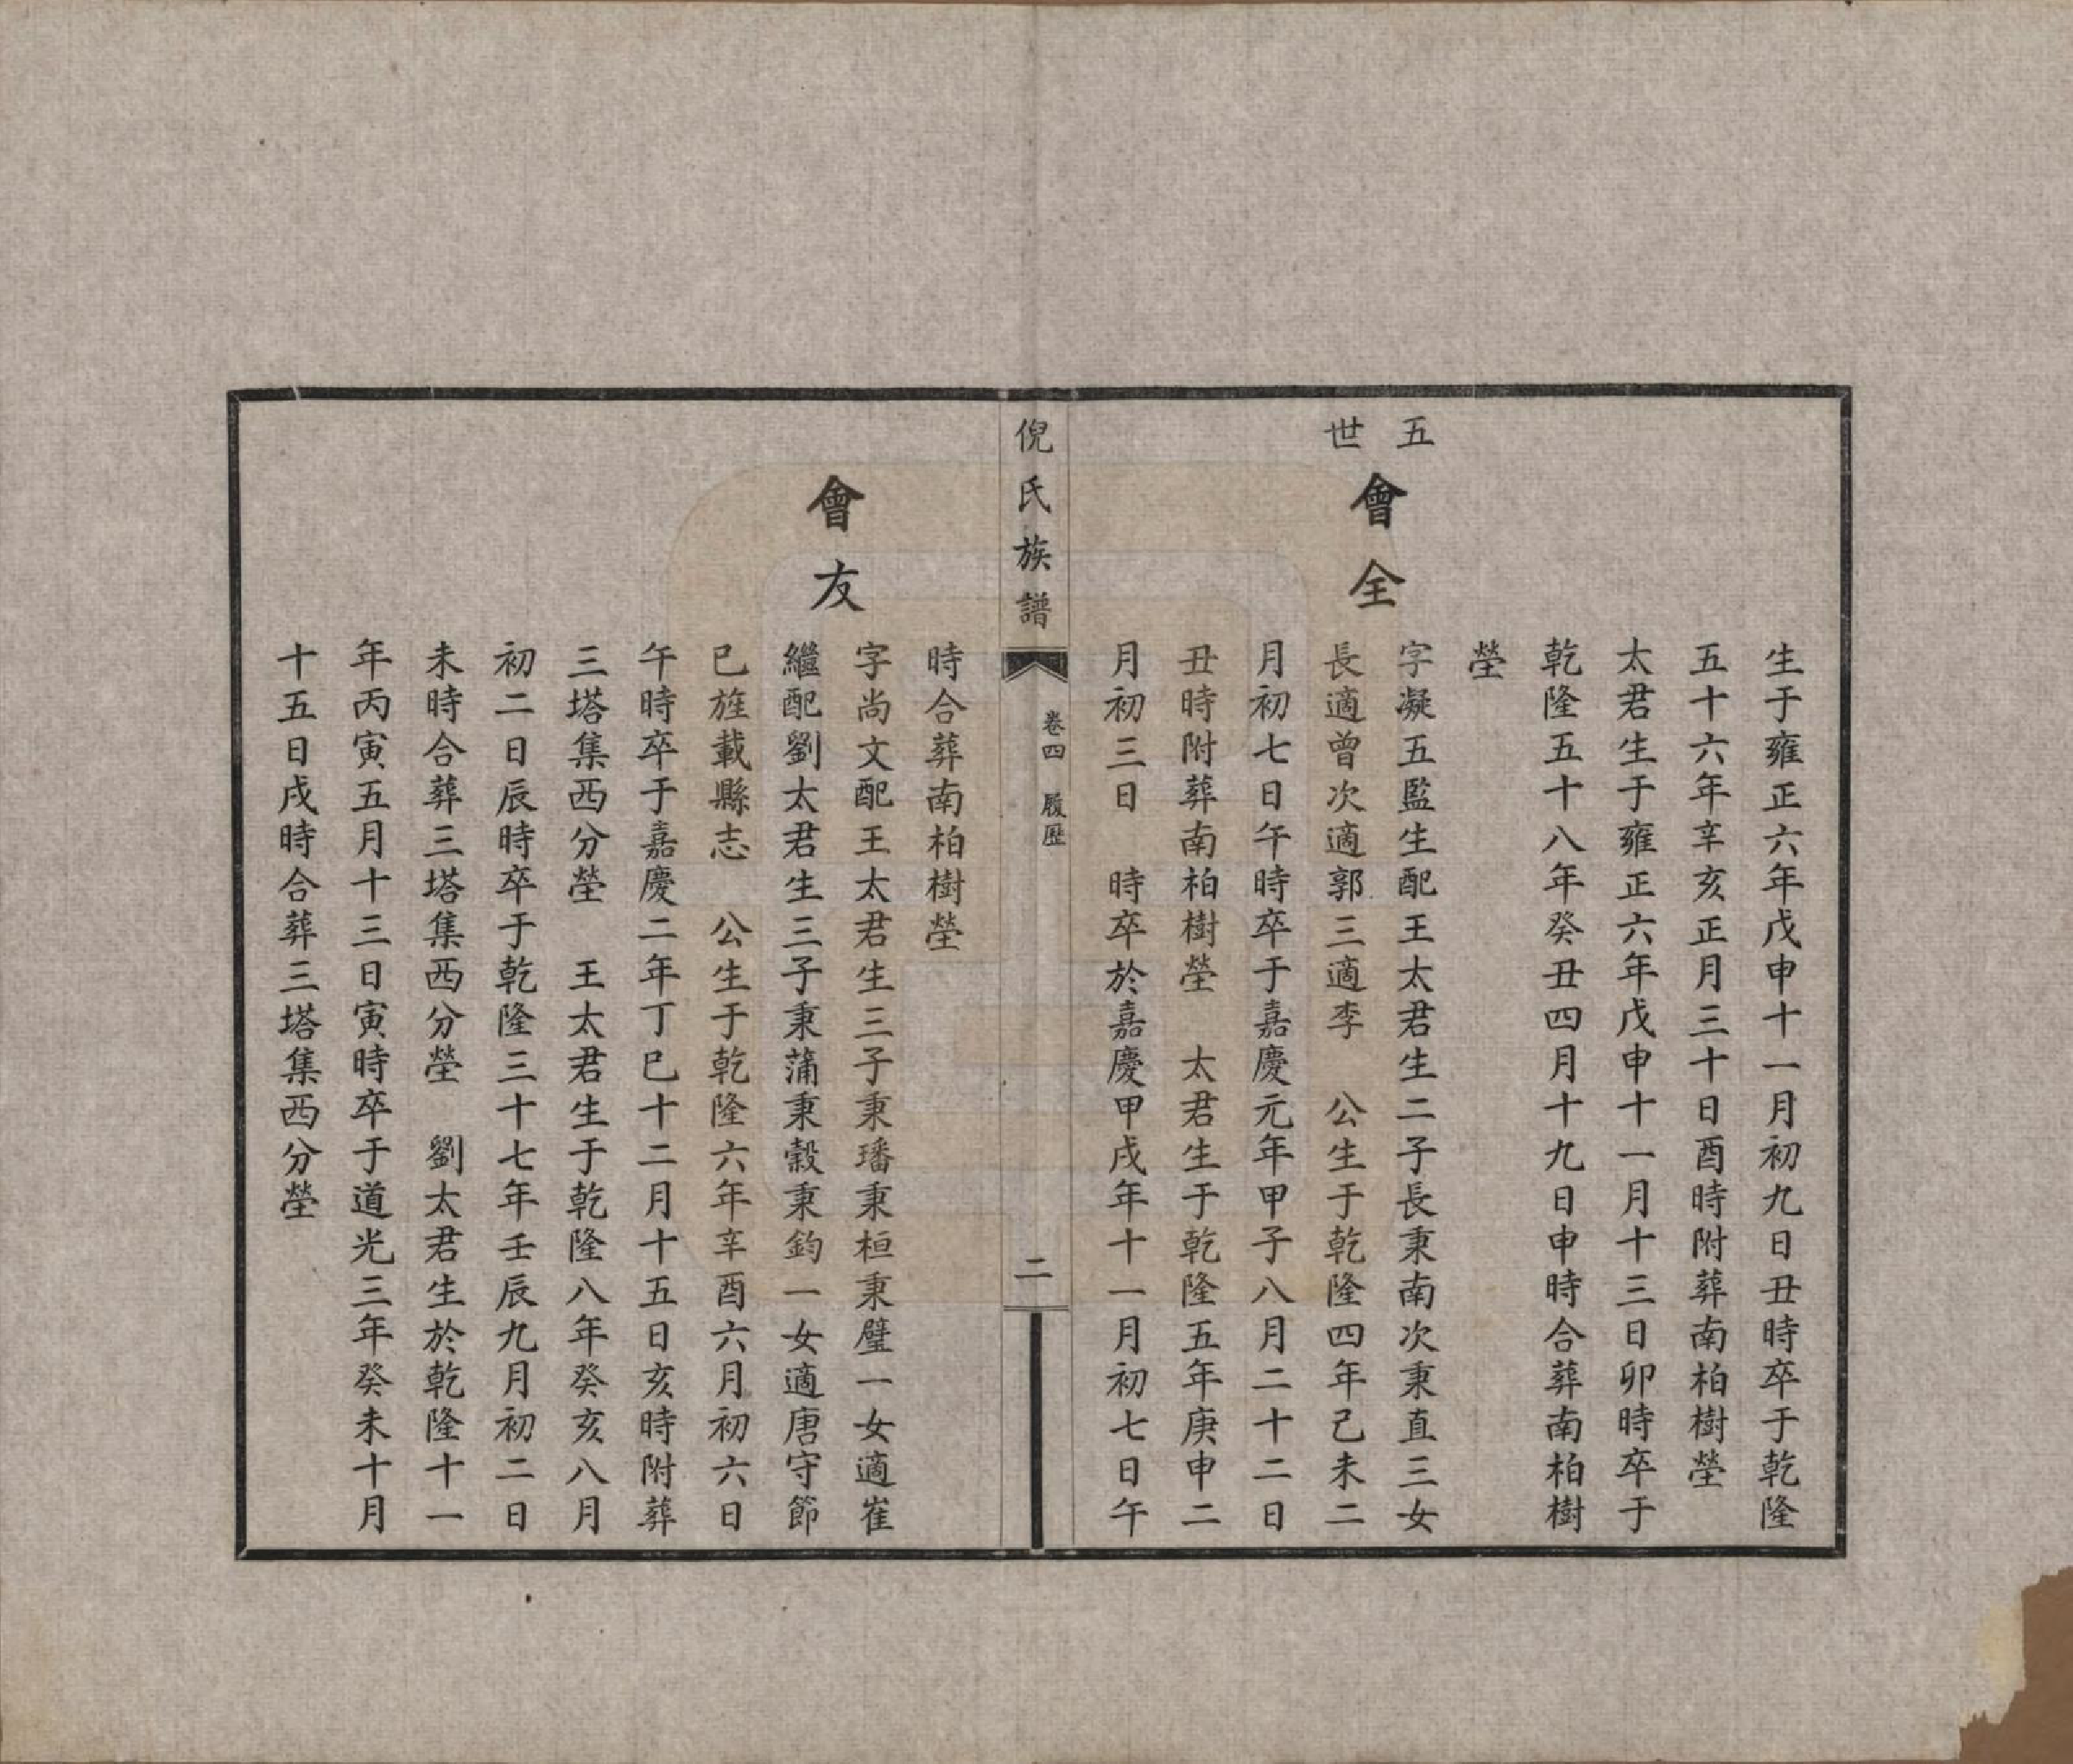 生于雍正六年戊申十一月初九日丑時卒于乾隆
五十六年辛亥正月三十日酉時附葬南柏樹塋
太君生于雍正六年戊申十一月十三日卯時卒于
乾隆五十八年癸丑四月十九日申時合葬南柏樹
塋
五世
會全
字凝五監生配王太君生二子長秉南次秉直三女
長適曾次適郭三適李　公生于乾隆四年己未二
月初七日午時卒于嘉慶元年甲子八月二十二日
丑時附葬南柏樹塋　太君生于乾隆五年庚申二
月初三日　時卒於嘉慶甲戌年十一月初七日午
倪氏族譜
卷四　履歷
二
時合葬南柏樹塋
會友
字尚文配王太君生三子秉璠秉桓秉璧一女適崔
繼配劉太君生三子秉蒲秉穀秉鈞一女適唐守節
已旌載縣志　公生于乾隆六年辛酉六月初六日
午時卒于嘉慶二年丁巳十二月十五日亥時附葬
三塔集西分塋　王太君生于乾隆八年癸亥八月
初二日辰時卒于乾隆三十七年壬辰九月初二日
未時合葬三塔集西分塋　劉太君生於乾隆十一
年丙寅五月十三日寅時卒于道光三年癸未十月
十五日戌時合葬三塔集西分塋